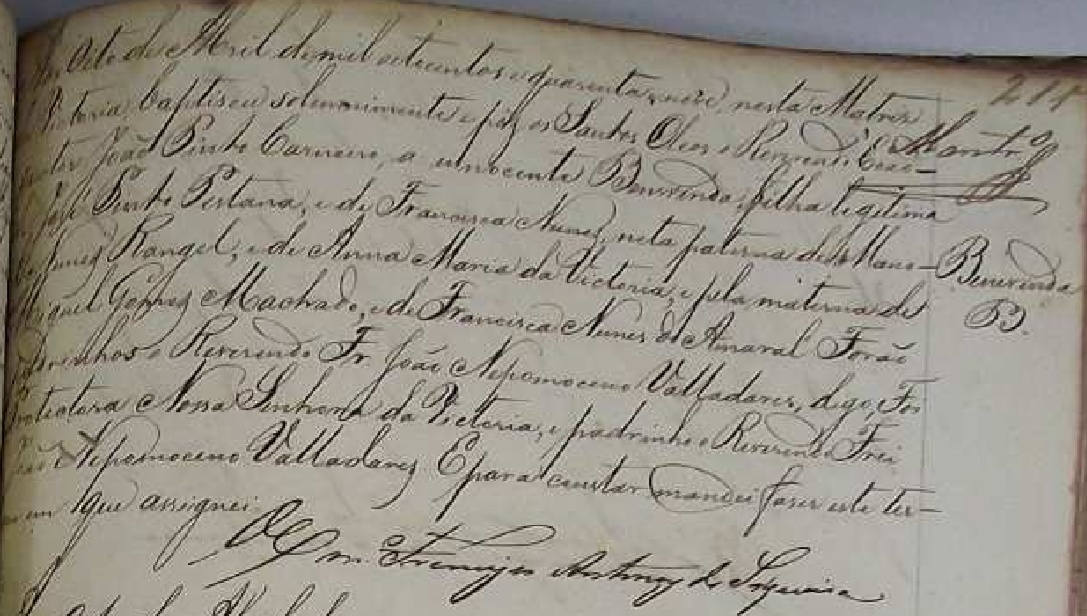 Oito de Abril de mil oitocentos e quarenta e nove, nesta Matriz
Victoria, baptisou solemnimente e pôz os Santos Oleos o Reverendo Coad-
João Pinto Carneiro, a innocente Benvinda, filha legitima
José Pinto Pestana, e de Francisca Nunes, neta paterna de Mano-
Nunes Rangel, e de Anna Maria da Victoria, e pela materna de
Miguel Gomes Machado, e de Francisca Nunes do Amaral Forão
Padrinhos o Reverendo Fr. João Nepomoceno Valladares, digo, Foi
Protectora Nossa Senhora da Victoria, e padrinho o Reverendo Frei
João Nepomoceno Valladares. E para constar mandei faser este ter-
que assignei.
Francisco Antunes de Siqueira
Benvinda
B.